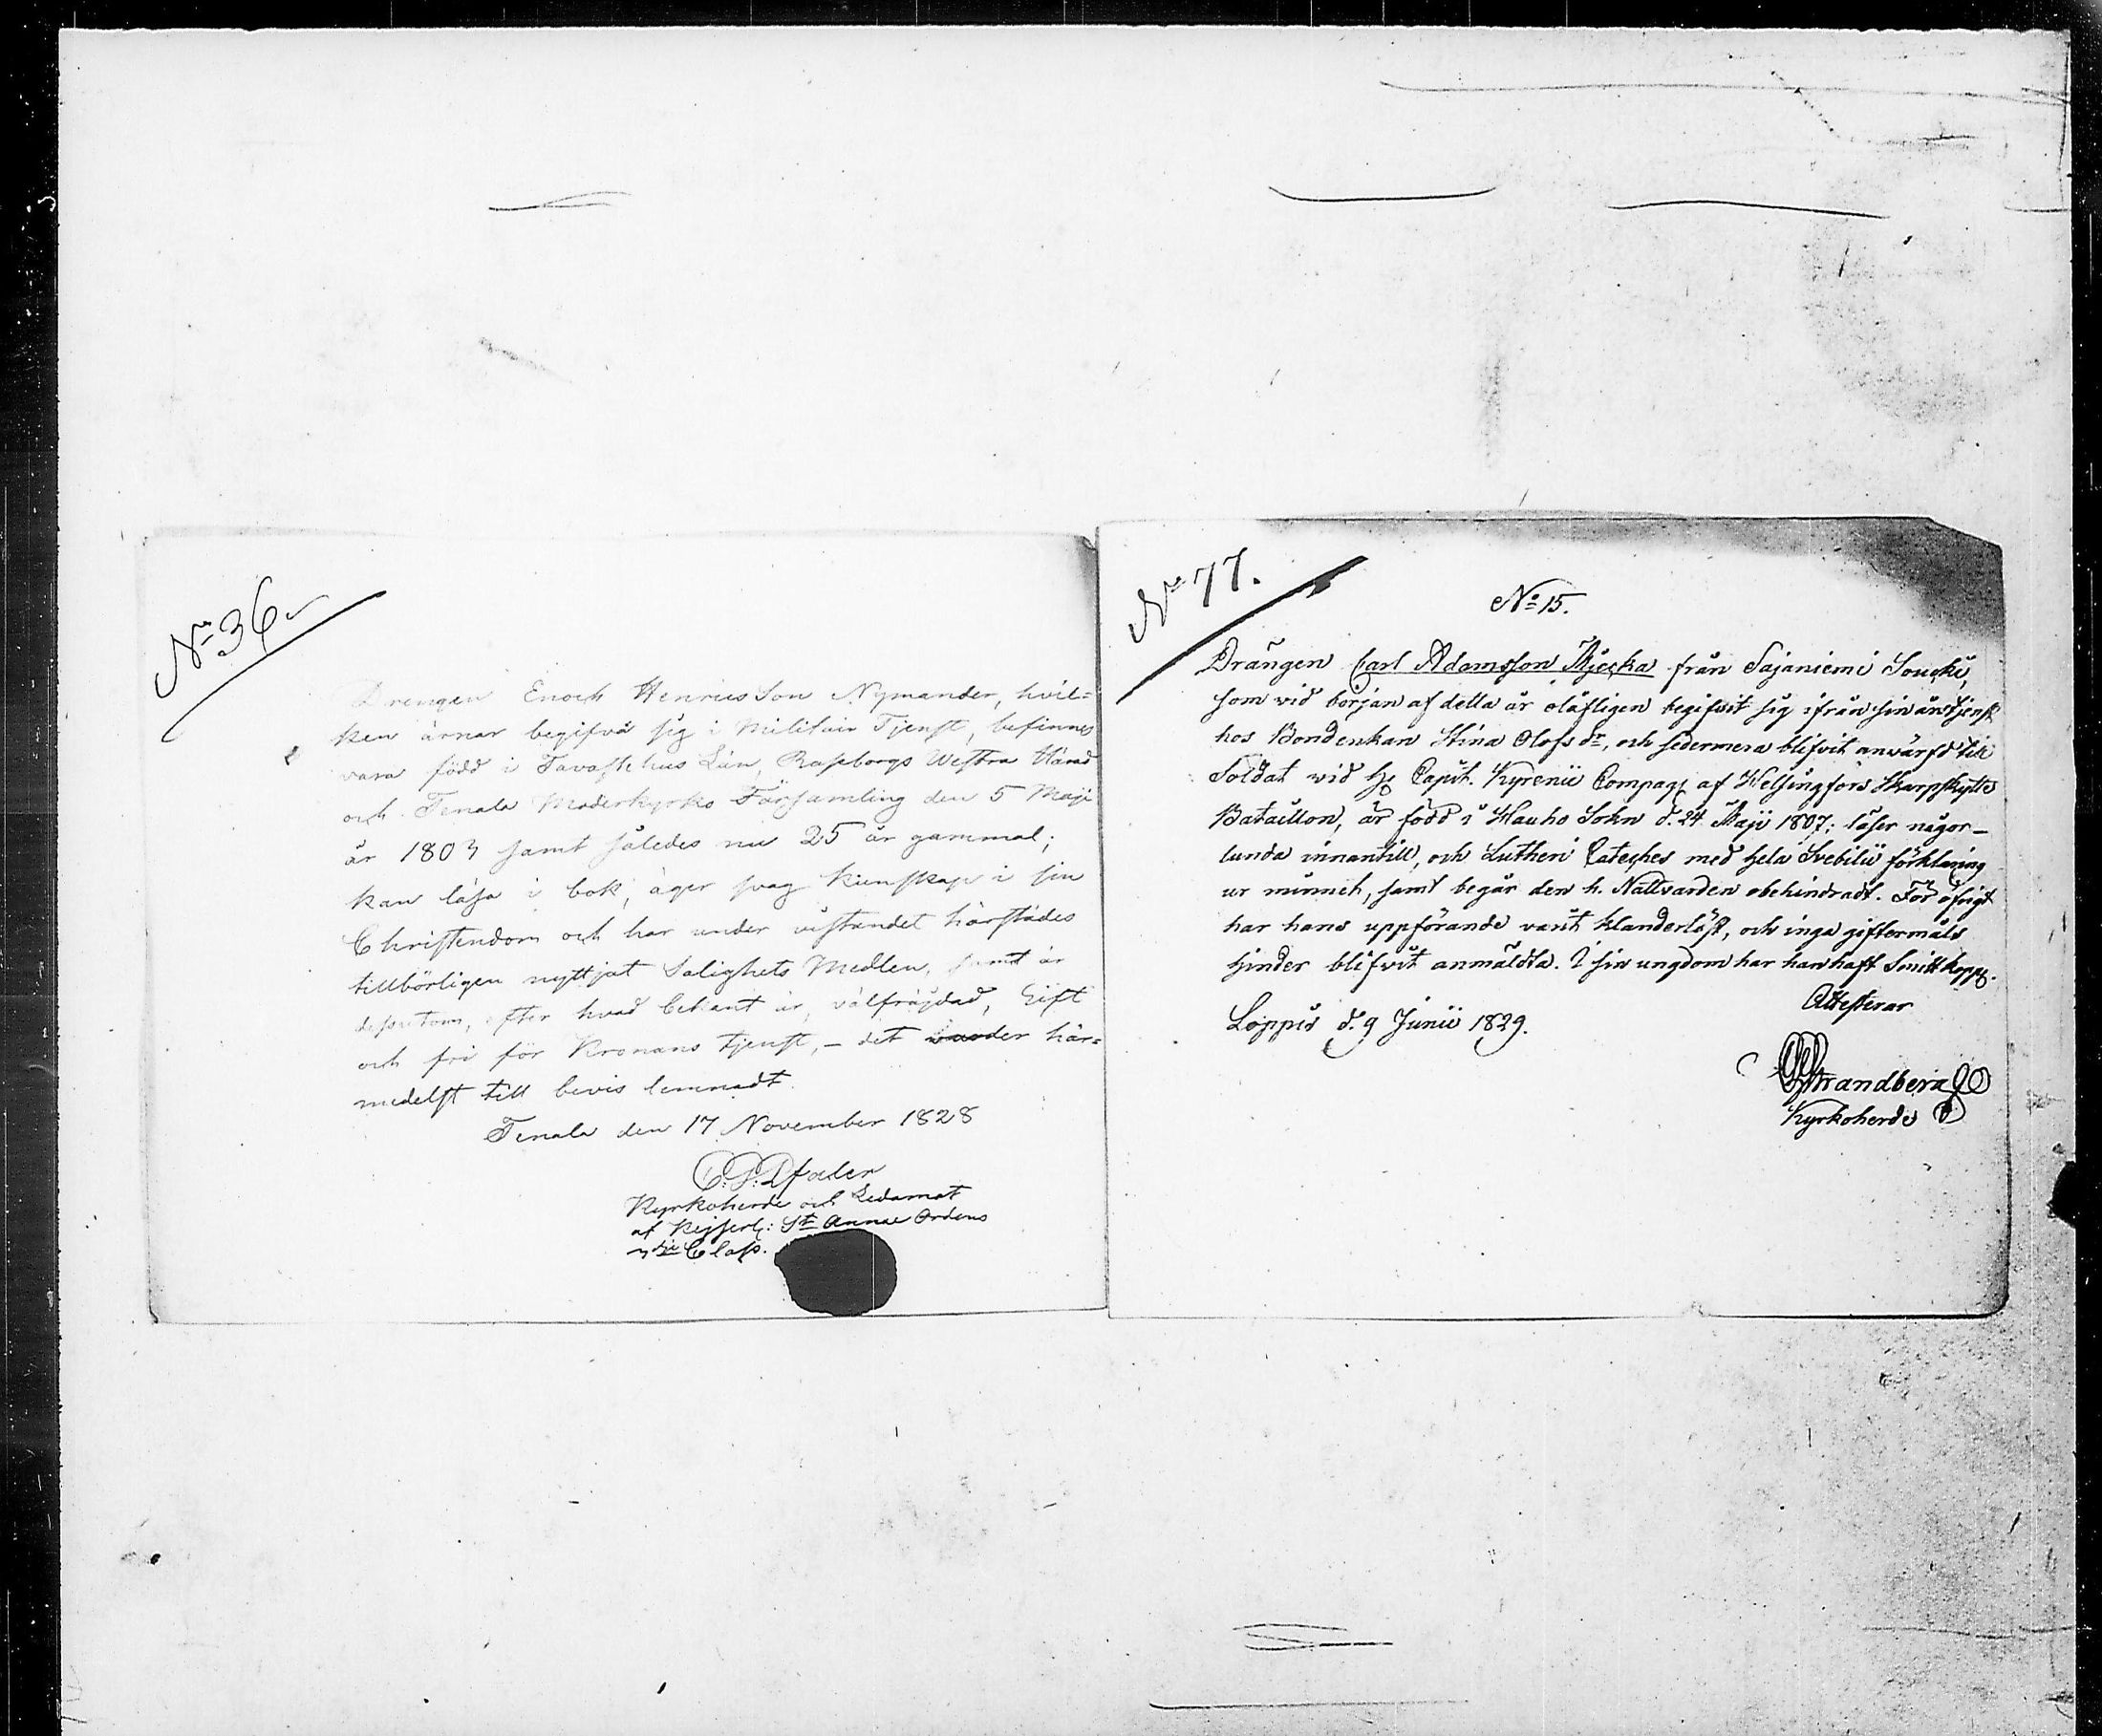 No 36
Drengen Enoch Henricsson Nymander, hvil=
ken ärnar begifva sig i Militair Tjenst, befinnes
vara född i Tavastehus Län, Raseborgs Westra Härad
och Tenala Moderkyrko Församling den 5 Maji
år 1803 samt således nu 25 år gammal;
kan läsa i bok, äger svag kunskap i sin
Christendom och har under vistandet härstädes
tillbörligen nyttjat Salighets Medlen, samt är
dessutom, efter hvad bekant är, välfräjdad, Gift
och fri för Kronans tjenst, – det varder här=
medelst till bevis lemnadt.
Tenala den 17 November 1828
Kyrkoherde och Ledamot
af Kejserl: St Annae Ordens
3dje Class.
No 77.
No 15.
Drängen Carl Adamsson from Sajaniemi
som vid början af detta år olofligen begifvit sig ifrån sin årstjenst
hos Bondenkan Stina Olofs dr, och sedermera blifvit anvärfd till
Soldat vid Hr Capit. Kyrenii Compag af Helsingfors Skarpskytte
Bataillon, är född i Hauho Sokn d. 24 Maji 1807; läser någor–
lunda innantill, och Lutheri Cateches med hela Svebilii förklaring
ur minnet, samt begår den h. Nattvarden obehindradt. För öfrigt
har hans uppförande varit klanderlöst, och inga giftermåls
hinder blifvit anmäldta. I sin ungdom har han haft Smittkopp.
Attesterar
Loppis d. 9 Junii 1829.
Strandberg
Kyrkoherde